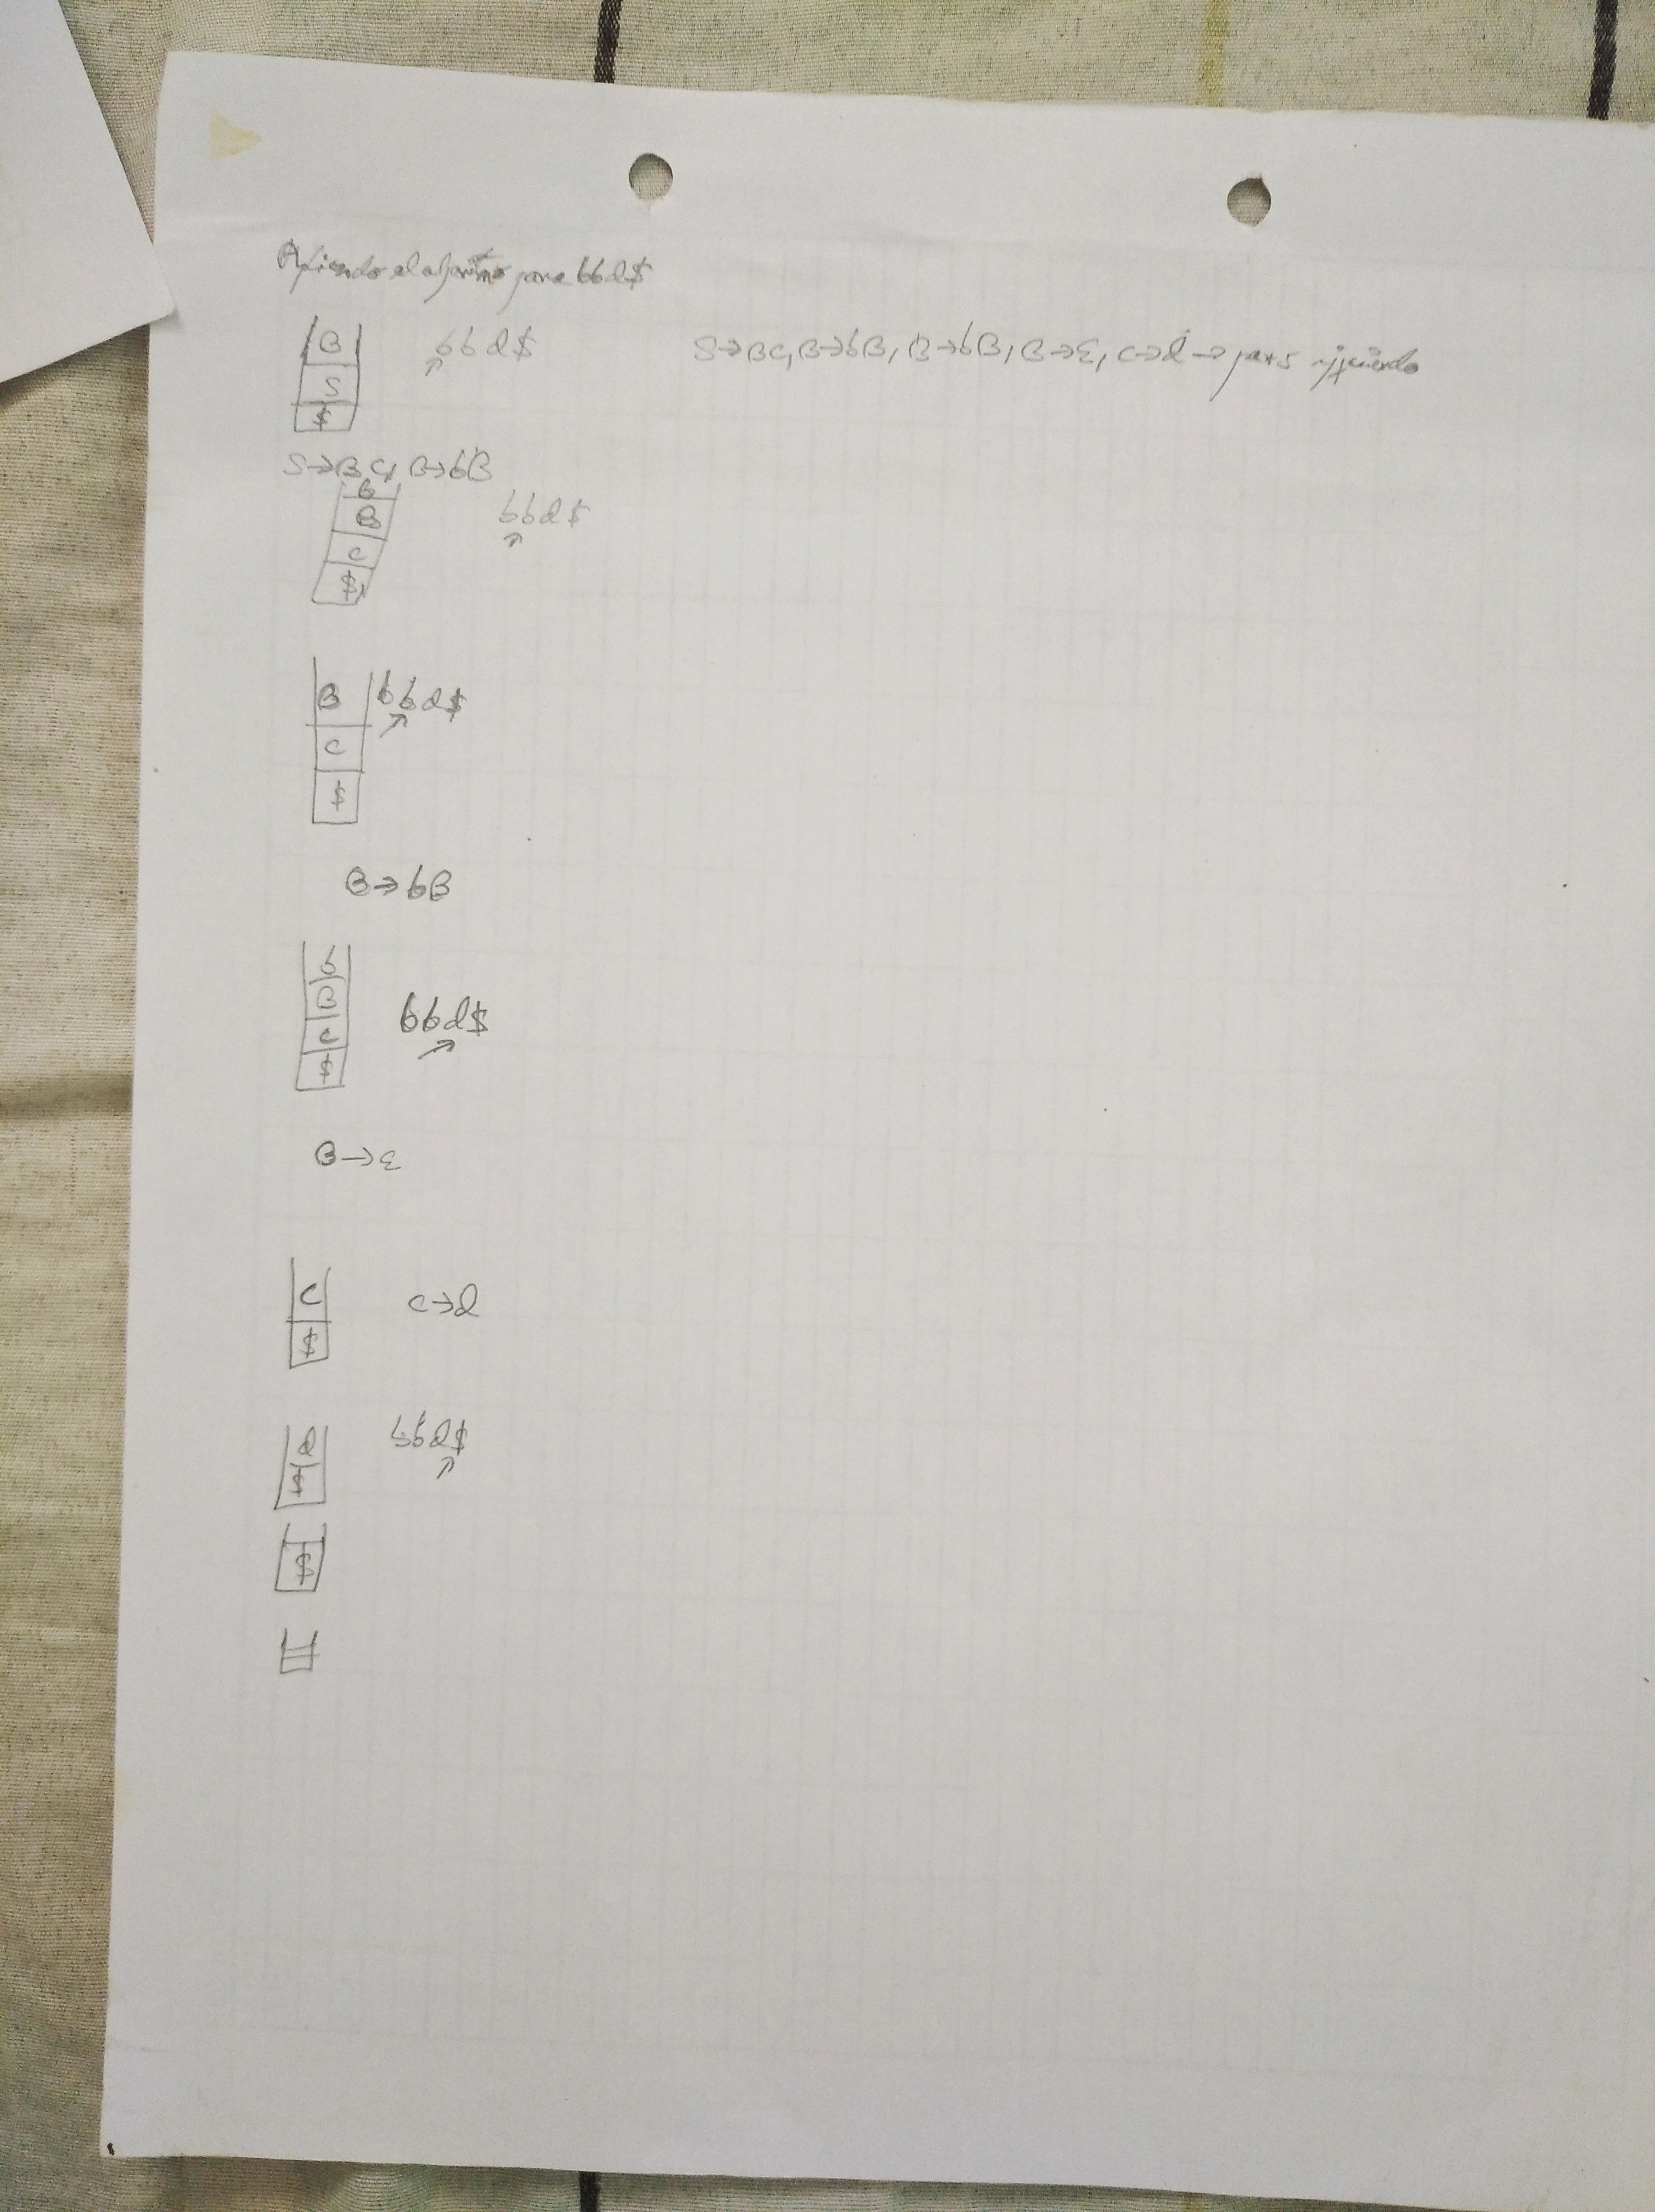 Aplicando el algoritmo para bbd$
B bbd$ S→BC, B→bB, B→bB, B→ε, C→d → parse izquierdo
S
$
S→BC, B→bB
b
B bbd$
C
$
B bbd$
C
$
B→bB
b
B bbd$
C
$
B→ε
C C→d
$
d bbd$
$
$